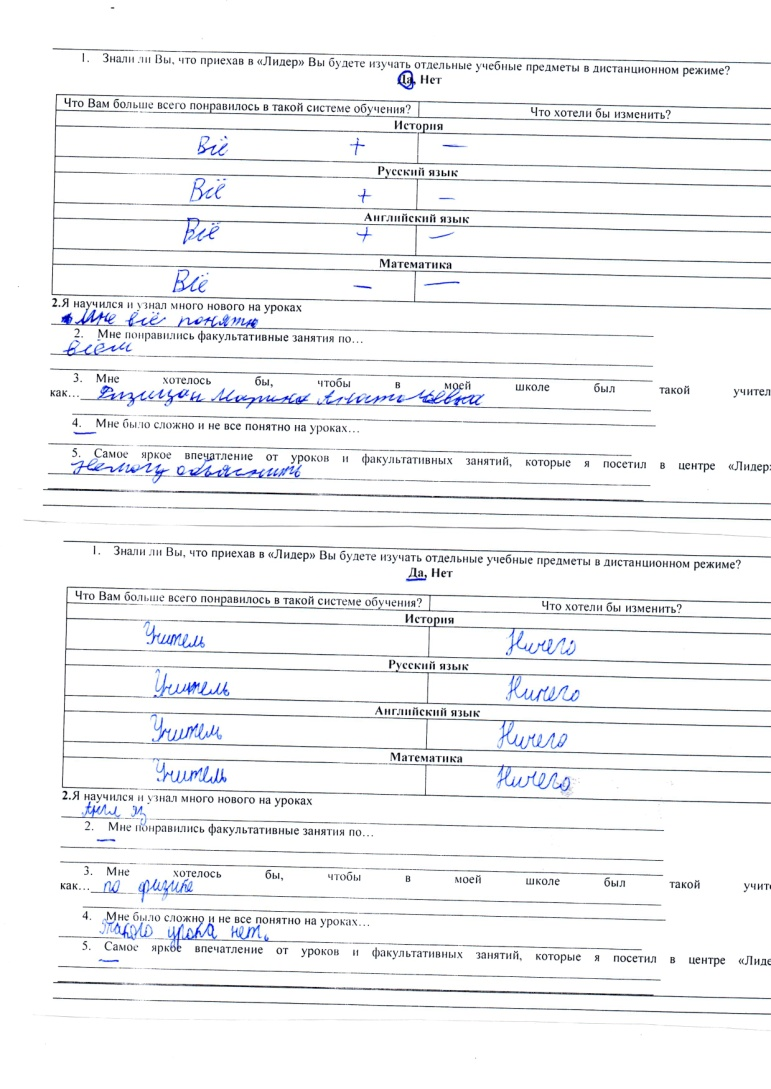 1. Знали ли Вы, что приехав в «Лидер» Вы будете изучать отдельные учебные предметы в дистанционном режиме?
Да, Нет
Что Вам больше всего понравилось в такой системе обучения? Что хотели бы изменить?
История
Всё + —
Русский язык
Всё + —
Английский язык
Всё + —
Математика
Всё — —
2.Я научился и узнал много нового на уроках
Мне всё понятно
2. Мне понравились факультативные занятия по…
всем
3. Мне хотелось бы, чтобы в моей школе был такой учител
как… Физицан Марина Анатольевна
4. Мне было сложно и не все понятно на уроках…
—
5. Самое яркое впечатление от уроков и факультативных занятий, которые я посетил в центре «Лидер»
Немогу объяснить
1. Знали ли Вы, что приехав в «Лидер» Вы будете изучать отдельные учебные предметы в дистанционном режиме?
Да, Нет
Что Вам больше всего понравилось в такой системе обучения? Что хотели бы изменить?
История
Учитель Ничего
Русский язык
Учитель Ничего
Английский язык
Учитель Ничего
Математика
Учитель Ничего
2.Я научился и узнал много нового на уроках
Англ яз
2. Мне понравились факультативные занятия по…
—
3. Мне хотелось бы, чтобы в моей школе был такой учите
как… по физике
4. Мне было сложно и не все понятно на уроках…
Такого урока нет.
5. Самое яркое впечатление от уроков и факультативных занятий, которые я посетил в центре «Лиде
—